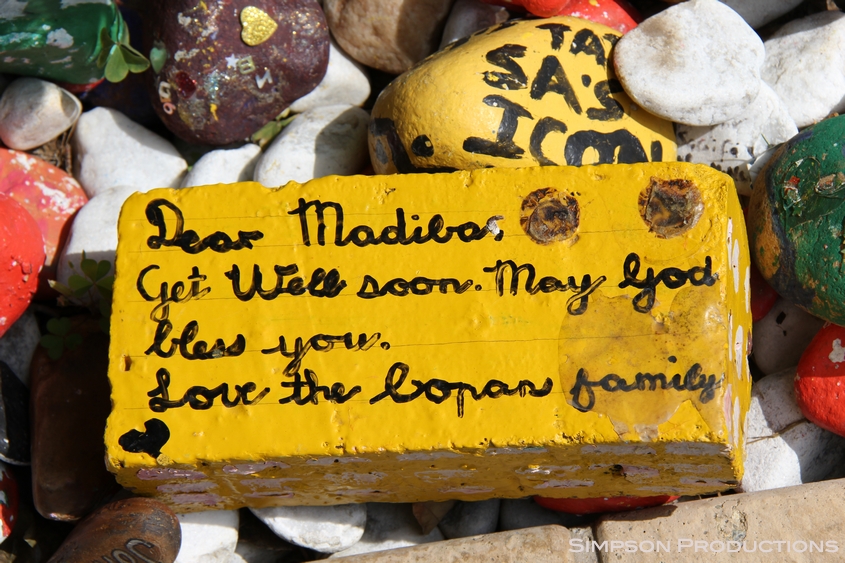 TATA
SA'S
ICON
Dear Madiba,
Get Well soon. May God
bless you.
Love the Copans family
SIMPSON PRODUCTIONS